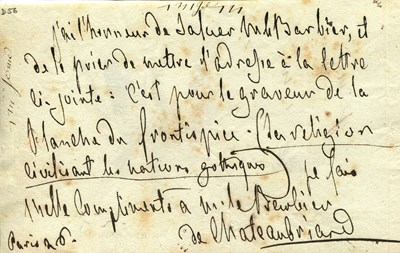 D58
j'ai l'honneur de saluer M. le Barbier, et
de le prier de mettre l'adresse à la lettre
ci-jointe: c'est pour le graveur de la
planche du frontispice.
religion
civilisant les nations gothiques
je fais
mille compliments a m. le Barbier
de Chateaubriand
Paris